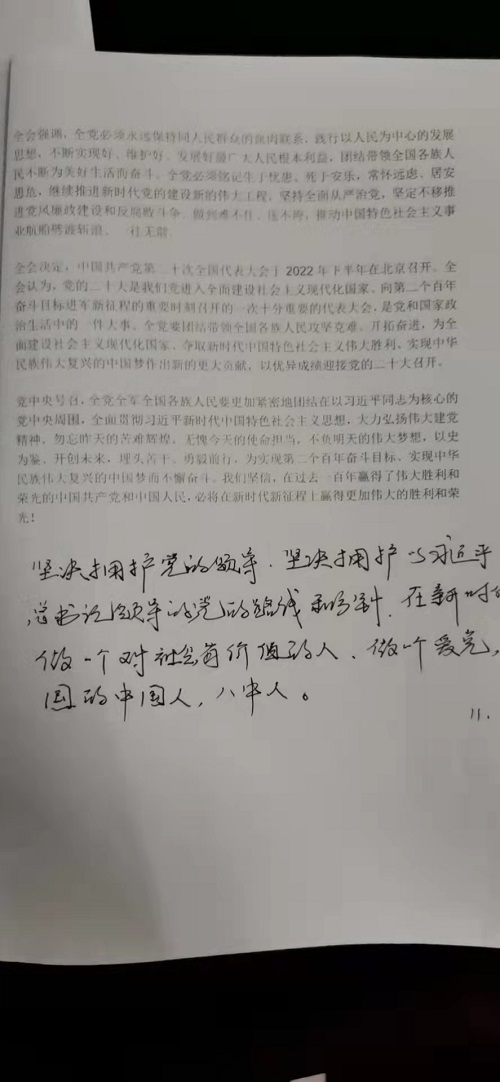 全会强调，全党必须永远保持同人民群众的血肉联系，践行以人民为中心的发展
思想，不断实现好、维护好、发展好最广大人民根本利益，团结带领全国各族人
民不断为美好生活而奋斗。全党必须铭记生于忧患、死于安乐，常怀远虑、居安
思危，继续推进新时代党的建设新的伟大工程，坚持全面从严治党，坚定不移推
进党风廉政建设和反腐败斗争，做到难不住、压不垮，推动中国特色社会主义事
业航船劈波斩浪、一往无前。
全会决定，中国共产党第二十次全国代表大会于2022年下半年在北京召开。全
会认为，党的二十大是我们党进入全面建设社会主义现代化国家、向第二个百年
奋斗目标进军新征程的重要时刻召开的一次十分重要的代表大会，是党和国家政
治生活中的一件大事。全党要团结带领全国各族人民攻坚克难、开拓奋进，为全
面建设社会主义现代化国家、夺取新时代中国特色社会主义伟大胜利、实现中华
民族伟大复兴的中国梦作出新的更大贡献，以优异成绩迎接党的二十大召开。
党中央号召，全党全军全国各族人民要更加紧密地团结在以习近平同志为核心的
党中央周围，全面贯彻习近平新时代中国特色社会主义思想，大力弘扬伟大建党
精神，勿忘昨天的苦难辉煌，无愧今天的使命担当，不负明天的伟大梦想，以史
为鉴、开创未来，埋头苦干、勇毅前行，为实现第二个百年奋斗目标、实现中华
民族伟大复兴的中国梦而不懈奋斗。我们坚信，在过去一百年赢得了伟大胜利和
荣光的中国共产党和中国人民，必将在新时代新征程上赢得更加伟大的胜利和荣
光！
坚决拥护党的领导，坚决拥护以习近平
总书记领导的党的路线和方针，在新时
做一个对社会有价值的人、做个爱党，
国的中国人，人。
11.